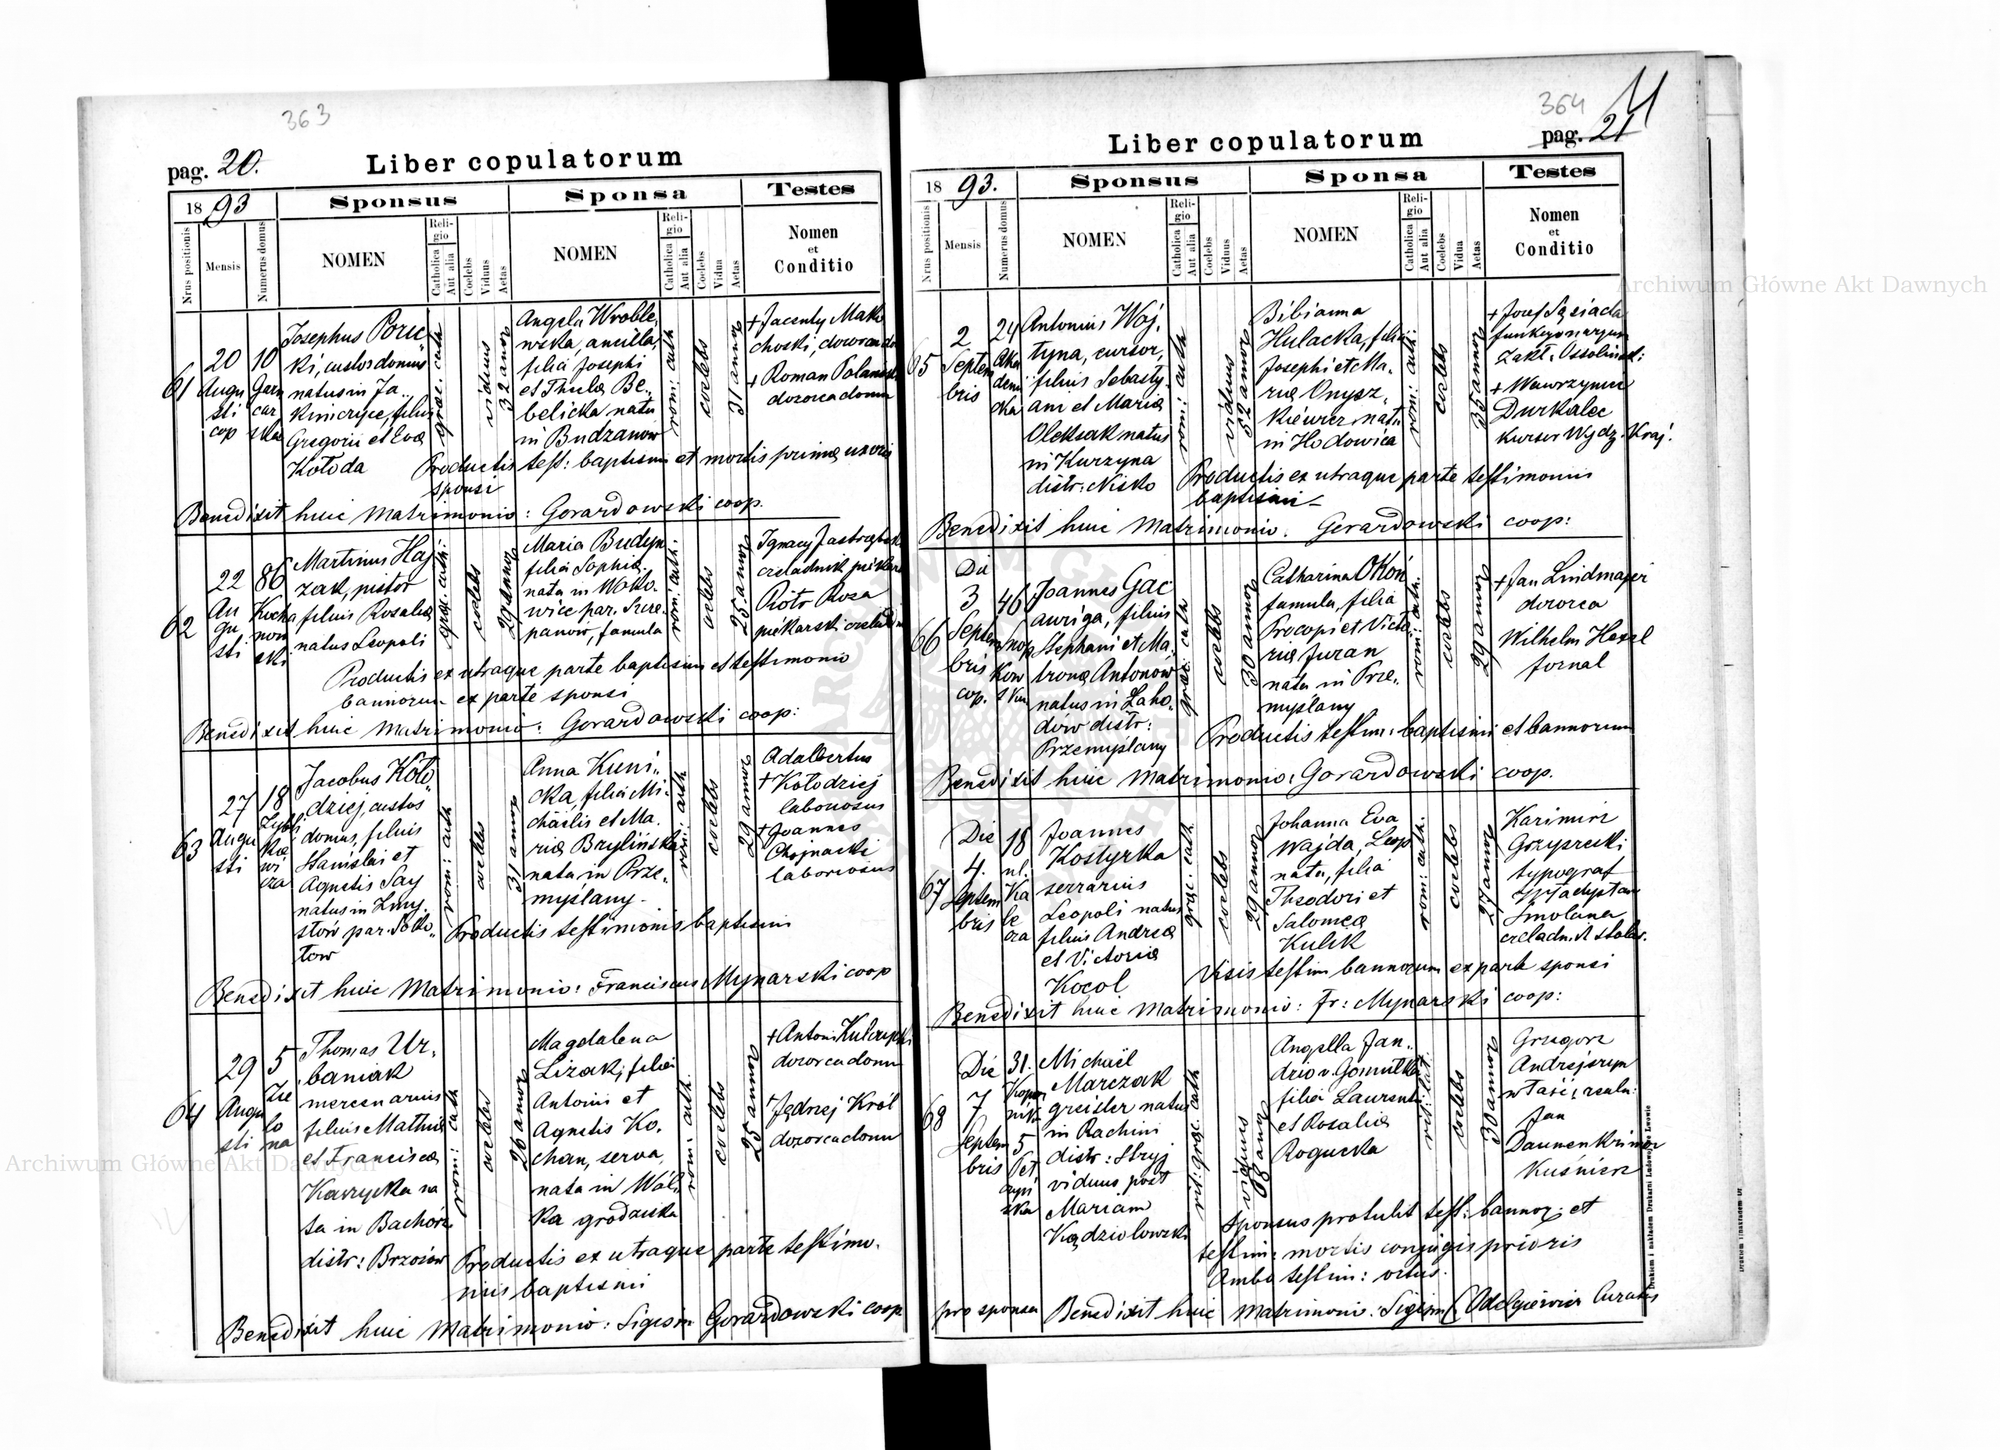 363
pag. 20.
Liber copulatorum
1893
Sponsus
Sponsa
Testes
Nrus positionis
Mensis
Numerus domus
NOMEN
Reli-
gio
Catholica
Aut alia
Coelebs
Viduus
Aetas
NOMEN
Reli-
gio
Catholica
Aut alia
Coelebs
Vidua
Aetas
Nomen
et
Conditio
61
20
Augu
sti
cop
10
Garn
car
ska
Josephus
ki, custos domus
natus in Ja
filius
Gregorii et Eva
Kołoda
græc. cath
viduus
32 annor
Angela Wroble,
wska, ancilla,
filia Josephi
et Thecla Be,
belicka nata
in Budzanów
rom: cath
coelebs
31 annor
+ Jacenty Mako
choski, dozorca do
+ Roman
dozorca domu
Productis test: baptismi et mortis prima uxoris
sponsi
Benedixit huic Matrimonio: Gorardowski coop.
62
22
Au
gu
sti
86
Kocha
now
ski
Martinus Haj
zak, pistor
filius Rosalia
natus Leopoli
græc. cath:
coelebs
29 annor
Maria Budyn
filia Sophia
nata in Woko,
wice par. Szcze
panow, famula
rom: cath:
coelebs
25 annor
Ignacy Jastrzębski
czeladnik piekars
Piotr Roza
piekarski czeladn
Productis ex utraque parte baptismi et testimonio
bannorum ex parte sponsi
Benedixit huic Matrimonio: Gorardowski coop:
63
27
Augu
sti
18
Zybli
kie
wi
cza
Jacobus Koło
dziej, custos
domus, filius
Stanislai et
Agnetis Say
natus in Zmy,
słów par. Soko,
low
rom: cath
coelebs
31 annor
Anna Kuni,
cka, filia Mi,
chaelis et Ma,
ria Brylińska
nata in Prze,
myślany.
rom: cath
coelebs
29 annor
Adalbertus
+ Kołodziej
laboriosus
+ Joannes
Chojnacki
laboriosus
Productis testimoniis baptismi
Benedixit huic Matrimonio: Franciscus Mynarski coop
64
29
Augu
sti
5
Zie
lo
na
Thomas Ur,
baniak
mercenarius
filius Mathia
et Francisca
Kaszycka na
ta in Bachórz
distr: Brzozów
rom: cath
coelebs
26 annor
Magdalena
Lizak, filia
Antoni et
Agnetis Ko,
chan, serva,
nata in Wól,
ka grodziska
rom: cath
coelebs
25 annor
+ Antoni Kulczycki
dozorca domu
+ Jędrzej Król
dozorca domu
Productis ex utraque parte testimo,
niis baptismi
Benedixit huic Matrimonio: Sigism Gorardowski coop
364
pag. 21
Liber copulatorum
1893.
Sponsus
Sponsa
Testes
Nrus positionis
Mensis
Numerus domus
NOMEN
Reli-
gio
Catholica
Aut alia
Coelebs
Viduus
Aetas
NOMEN
Reli-
gio
Catholica
Aut alia
Coelebs
Vidua
Aetas
Nomen
et
Conditio
65
2
Septem
bris
24
Aka
demi
cka
Antonius Woj,
tyna, cursor,
filius Sebasty,
ani et Maria
Oleksak natus
in Kurzyna
distr: Nisko
rom: cath
viduus
52 annor
Bibianna
Hulacka, filia
Josephi et Ma,
ria Onysz,
kiewicz nata
in Hodowica
rom: cath:
coelebs
35 annor
+ Józef Sąsiada
funkcyonaryusz
Zakł. Ossolińsk:
+ Wawrzyniec
Durkalec
kursor Wydz. Kraj.
Productis ex utraque parte testimoniis
baptismi
Benedixit huic Matrimonio: Gerardowski coop:
66
Die
3
Septem
bris
cop.
46
Snop
kow
ska
Joannes Gac
auriga, filius
Stephani et Ma,
trona Antonow
natus in Laho,
dów distr:
Przemyślany
græc: cath
coelebs
30 annor
Catharina Okoń
famula, filia
Procopi et Victo,
ria Juzan
nata in Prze,
myślany
rom: cath.
coelebs
29 annor
+ Jan Lindmajer
dozorca
Wilhelm Hessel
fornal
Productis testim: baptismi et bannorum
Benedixit huic Matrimonio: Gorardowski coop.
67
Die
4.
Septem
bris
18
ul.
Ka
le
cza
Joannes
Kostyrka
serrarius
Leopoli natus
filius Andrea
et Victoria
Kocol
græc. cath
coelebs
29 annor
Johanna Eva
Wajda, Leop
nata, filia
Theodori et
Salomea
Kulik
rom: cath.
coelebs
27 annor
Kazimirz
Grzyzecki
typograf
Władysław
Smolana
czeladnik stolar.
Visis testim bannorum ex parte sponsi
Benedixit huic Matrimonio: Fr: Mynarski coop:
68
Die
7
Septem
bris
31.
Koper
nik
5
Pet
czyń
ska
Michaël
Marczak
greisler natus
in Rachini
distr: Stryj
viduus post
Mariam
Kądziolowski
rit: græc. cath
viduus
68 annor
Angella Jan,
dzio v. Gomułka
filia Laurenti
et Rosalia
Rogucka
rit: lat.
coelebs
30 annor
Grzegorz
Andrejszyn
właśc, realn:
Jan
Daunenkirner
kuśnierz
Sponsus protulit test: bannor: et
testim: mortis conjugis prioris
Ambo testim: ortus.
pro sponsa Benedixit huic Matrimonio: Sigism Odelgiewicz Curatus
Drukiem i nakładem Drukarni Ludowej we Lwowie
Archiwum Główne Akt Dawnych
Archiwum Główne Akt Dawnych